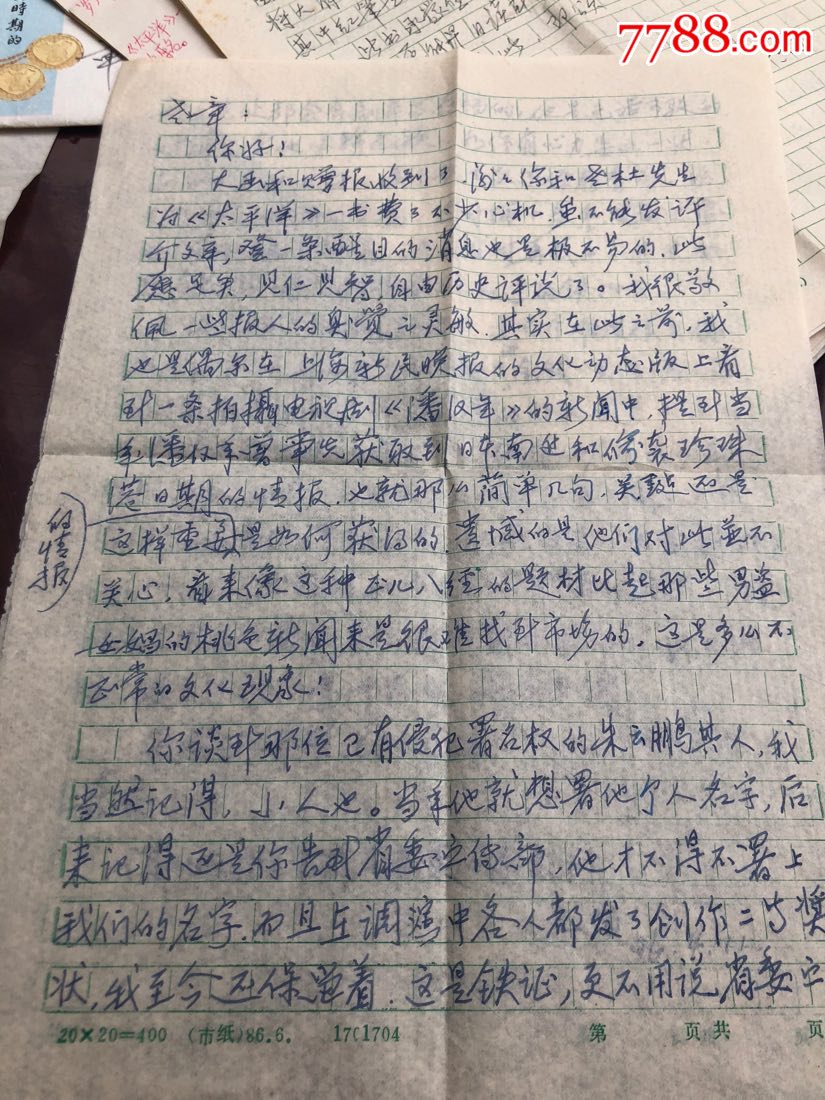 7788.com
时期的
《太平洋》
你好！
大函和贝尔报收到了，谢谢你和老杜先生
对《太平洋》一书费了不少心机，虽不能发评
介文章，登一条醒目的消息也是极不易的，此
愿足矣，见仁见智自由历史评说了。我很敬
佩一些报人的嗅觉之灵敏，其实在此之前，我
也是偶尔在上海新民晚报的文化动态版上看
到一条拍摄电视剧《潘汉年》的新闻中，提到当
年潘汉年曾事先获取到日本南进和偷袭珍珠
港日期的情报，也就那么简单几句，关键还是
这样重要的情报是如何获得的，遗憾的是他们对此并不
关心，看来像这种正儿八经的题材比起那些男盗
女娼的桃色新闻来是很难找到市场的，这是多么不
正常的文化现象！
你谈到那位已有侵犯署名权的朱云鹏其人，我
当然记得，小人也。当年他就想署他个人名字，后
来记得还是你告到省委宣传部，他才不得不署上
我们的名字，而且在调演中各人都发了创作二等奖
状，我至今还保管着，这是铁证，更不用说省委宣
20×20=400 （市纸）86.6. 1701704 第 页共 页